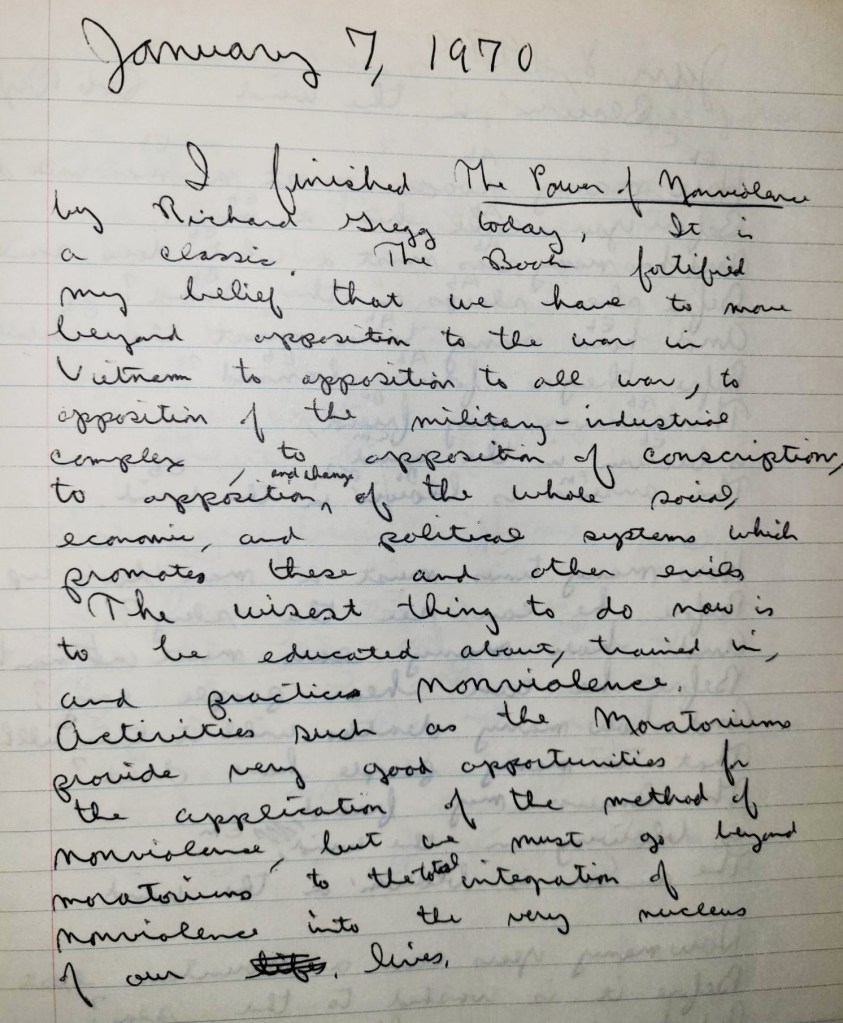 January 7, 1970
I finished The Power of Nonviolence
by Richard Gregg today, It is
a classic. The Book fortified
my belief that we have to move
beyond opposition to the war in
Vietnam to opposition to all war, to
opposition of the military-industrial
complex, to opposition of conscription,
to opposition, and change of the whole social,
economic, and political systems which
promotes these and other evils
The wisest thing to do now is
to be educated about, trained in,
and practice nonviolence.
Activities such as the Moratoriums
provide very good opportunities for
the application of the method of
nonviolence, but we must go beyond
moratoriums to the total integration of
nonviolence into the very nucleus
of our lives.